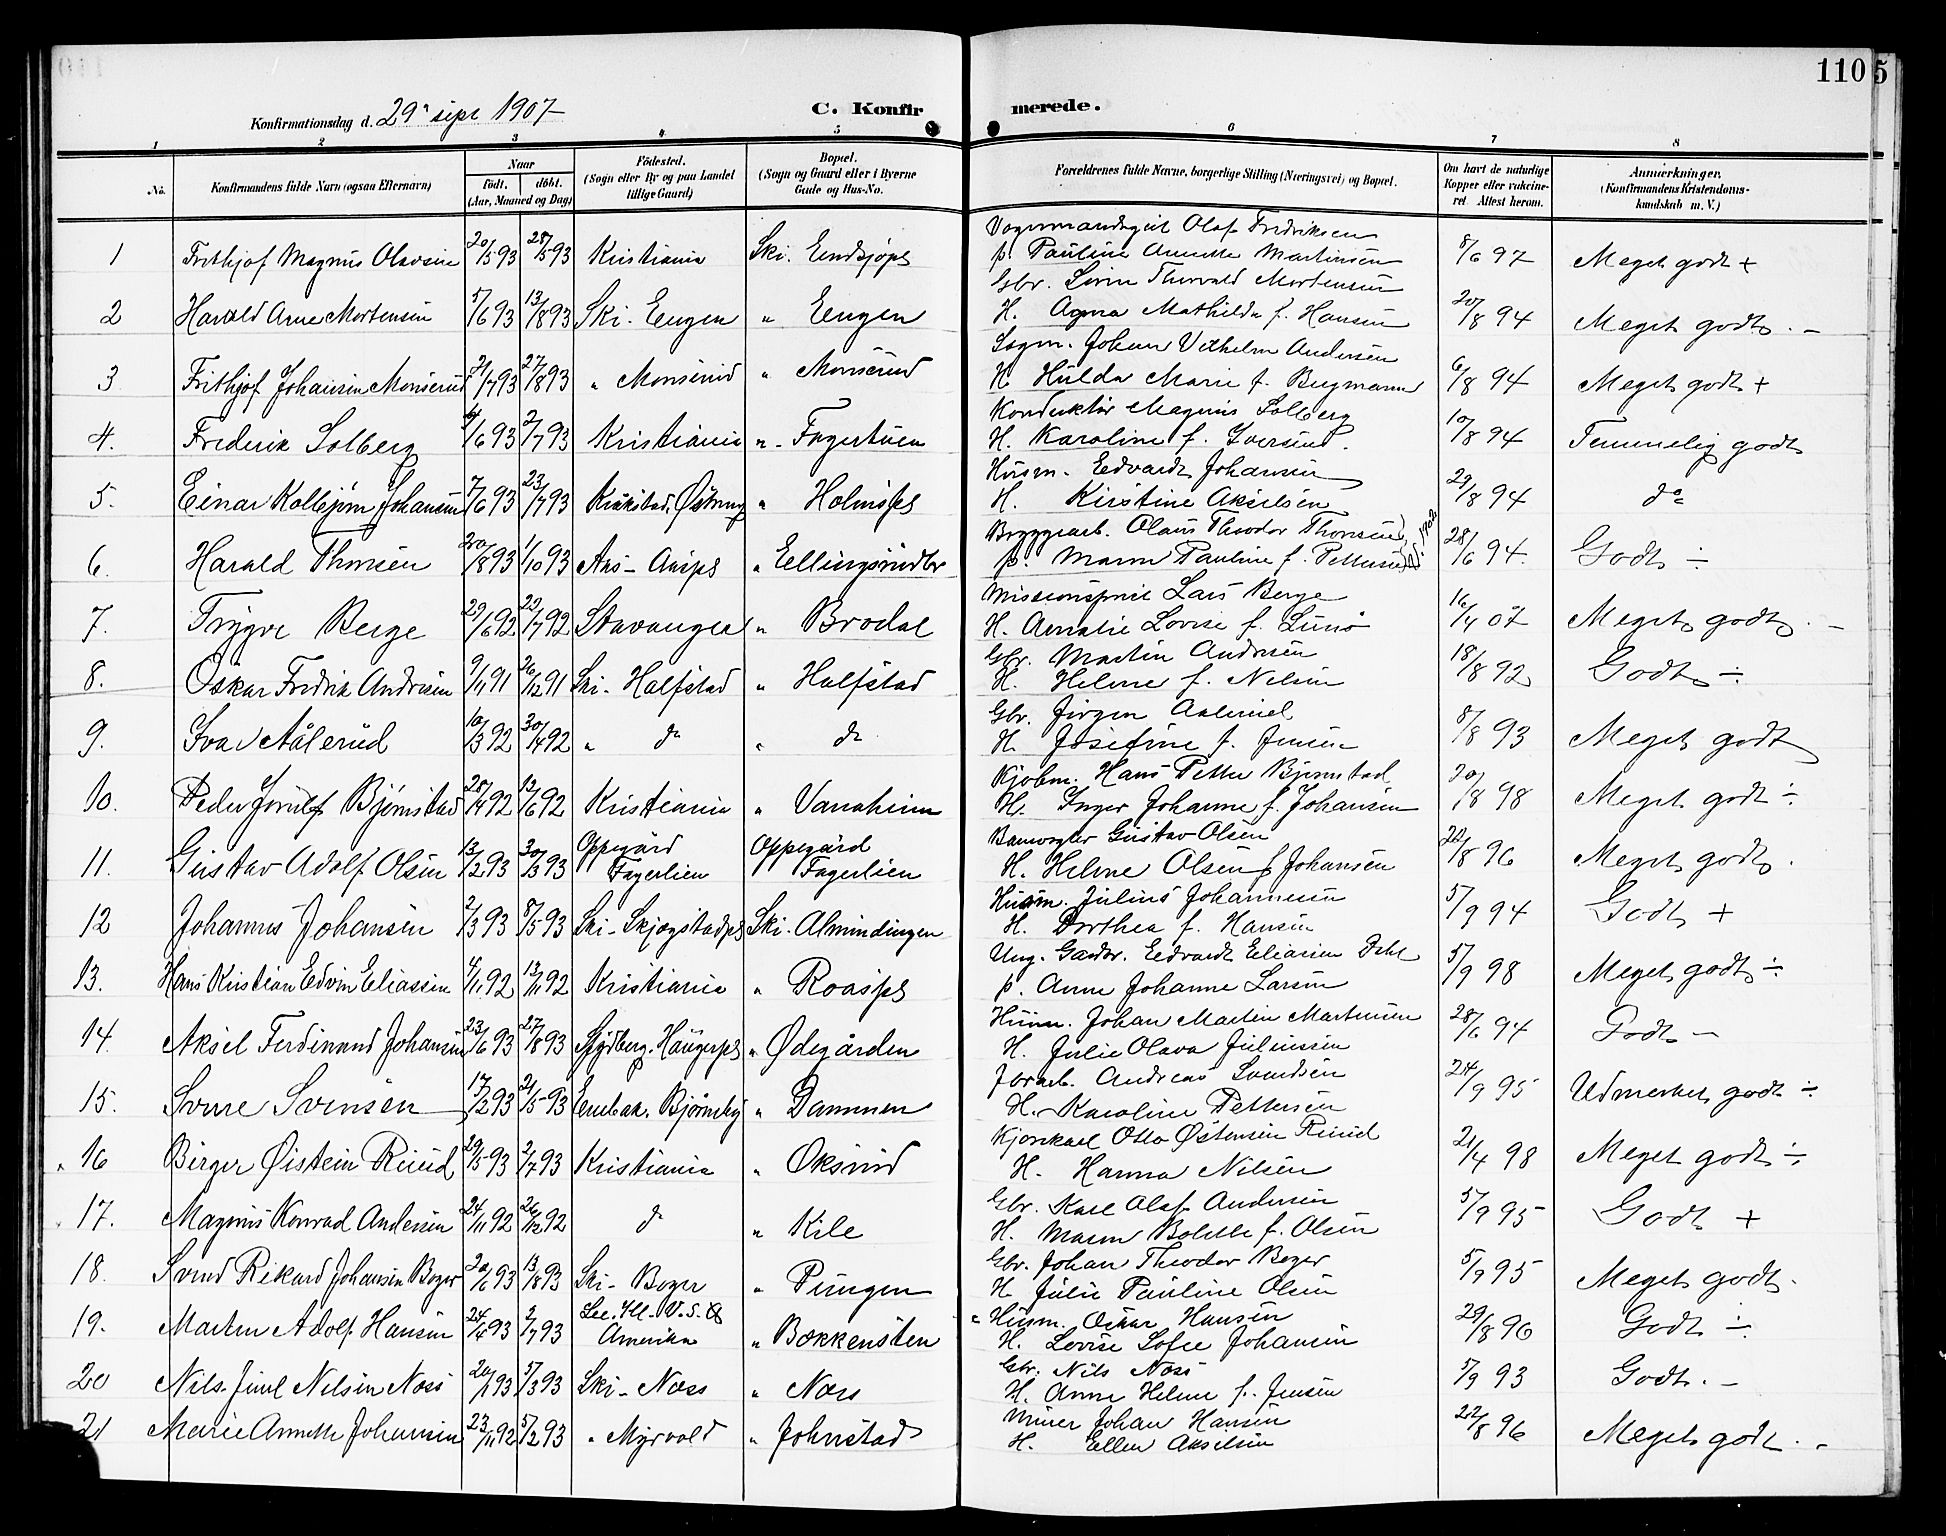 110 5
Konfirmationsdag d. 29' sept 1907
C. Konfirmerede.
1 2 3 4 5 6 7 8
No. Konfirmandens fulde Navn (ogsaa Efternavn) Naar født, døbt. (Aar, Maaned og Dag) Fødested. (Sogn eller By og paa Landet tillige Gaard) Bopæl. (Sogn og Gaard eller i Byerne Gade og Hus-No. Forældrenes fulde Navne, borgerlige Stilling (Næringsvei) og Bopæl. Om havt de naturlige Kopper eller vakcineret. Attest herom. Anmærkninger. (Konfirmandens Kristendomskundskab m. V.)
Olaf Fredriksen
1 Frithjof Magnus Olavsen 20/5 93 28/5 93 Kristiania Ski. p. Pauline Annette Martinsen 8/6 97 Meget godt +
Gbr. Søren Thorvald Mortensen
2 Harald Arne Mortensen 5/6 93 13/8 93 Ski - Engen " Engen H. Agnes Mathilde f. Hansen 20/8 94 Meget godt. -
Sagm. Johan Vilhelm Andersen
3 Frithjof Johansen Monserud 21/7 93 27/8 93 " Monserud " Monserud H. Hulda Marie f. Bergmann 6/8 94 Meget godt +
Konduktør Magnus Solberg
4. Frederik Solberg 4/6 93 2/7 93 Kristiania " - Fagertuen H. Karoline f. Iversen. 10/8 94 Temmelig godt
Husm. Edvardt Johansen
5. Einar Kolbjørn Johansen 7/6 93 23/7 93 Kraakstad, " Holmspl H. Kirstine Akselsen 29/8 94 do
Bryggearb. Olaus Theodor Thomsen
6. Harald Thomsen 20/8 93 1/10 93 Aas - " Ellingsrudbr p. Maren Pauline f. Pettersen 28/6 94. Godt ÷
Missionsprest Lars Berge
7. Trygve Berge 29/6 92 23/7 92 Stavanger " Brodal H. Amalie Lovise f. Lunø 16/4 07 Meget godt. -
Gbr. Martin Andresen
8. Oskar Fredrik Andresen 9/11 91 26/12 91 Ski - Halfstad " Halfstad H. Helene f. Nilsen 18/8 92 Godt ÷
Gbr. Jørgen Aalerud
9. Ivar Aålerud 10/3 92 30/4 92 " do " do H. Josefine f. Jensen 8/8 93 Meget godt
Kjøbm. Hans Petter Bjørnstad
10. Peder Jonulf Bjørnstad 20/4 92 12/6 92 Kristiania " Vanaheim H. Inger Johanne f. Johansen 30/8 98 Meget godt ÷
Banevogter Gustav Olsen
11. Gustav Adolf Olsen 13/2 93 30/3 93 Oppegård Fagerlien Oppegård Fagerlien H. Helene Olsen f Johansen 22/8 96 Meget godt.
Husm. Julius Johannesen
12 Johannes Johansen 2/3 93 8/5 93 Ski - Skjøgstadpl Ski - Almindingen H. Dorthea f. Hansen 5/9 94 Godt +
Ung. Gaardbr. Edvardt Eliasen Dahl
13. Hans Kristian Edvin Eliassen 4/11 92 13/11 92 Kristiania " Roaspl p. Anne Johanne Larsen 5/9 98 Meget godt ÷
Husm. Johan Martin Martinsen
14. Aksel Ferdinand Johansen 23/6 93 27/8 93 Spydberg. Haugerpl " Ødegården H. Julie Olava Juliussen 28/6 94 Godt -
Jbrarb. Andreas Svendsen
15. Sverre Svensen 17/2 93 21/5 93 Enebak. Bjørneby " Dammen H. Karoline Pettersen 24/9 95 Udmerket godt ÷
Kjørekarl Otto Østensen Ruud
16 Birger Øistein Ruud 29/5 93 2/7 93 Kristiania " Oksrud H. Hanna Nilsen 21/4 98 Meget godt ÷
Gbr. Karl Olaf Andersen
17. Magnus Konrad Andersen 24/11 92 26/12 92 do " Kile H. Maren Bolette f. Olsen 5/9 95 Godt +
Gbr. Johan Theodor Boger
18. Svend Rikard Johansen Boger 20/6 93 13/8 93 Ski - Boger " Pungen H Julie Pauline Olsen 5/9 95 Meget godt.
Husm. Oskar Hansen
19. Martin Adolf Hansen 24/4 93 2/7 93 Lee. Ill. U.S. A Amerika " Bøkkensten H. Lovise Sofie Johansen 29/8 96 Godt ÷
Gbr. Nils Næss
20 Nils Juul Nilsen Næss 20/1 93 5/3 93 Ski - Næss " Næss H. Anne Helene f. Jensen 5/9 93 Godt. -
Murer Johan Hansen
21 Marie Annette Johansen 23/11 92 5/2 93 " Myrvold " Johnstad H. Ellen Akselsen 22/8 96 Meget godt. -